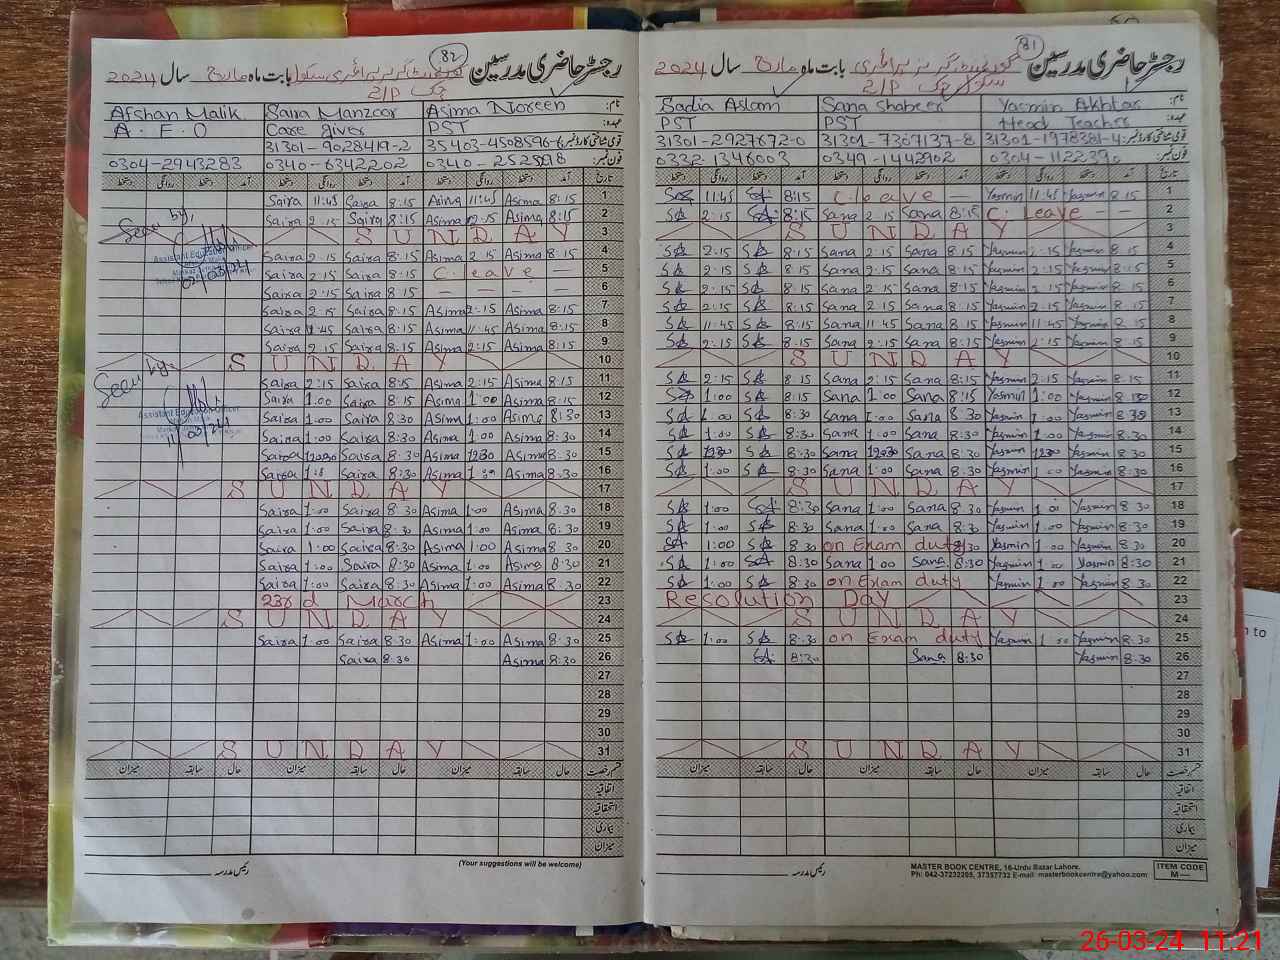 82
رجسٹر حاضری مدرسین گورنمنٹ گرلز پرائمری سکول بابت ماہ مارچ سال 2024
چک 2/P
Afshan Malik Saira Manzoor Asima Noreen
A.E.O Care giver PST
31301-9028419-2 35403-4508596-6
0304-2943283 0340-6342202
دستخط روانگی دستخط آمد دستخط روانگی دستخط آمد دستخط روانگی دستخط آمد تاریخ
Saira 11:45 Saira 8:15 Asima 11:45 Asima 8:15 1
Saira 2:15 Saira 8:15 Asima 2:15 Asima 8:15 2
Seen by,
SUNDAY 3
Saira 2:15 Saira 8:15 Asima 2:15 Asima 8:15 4
Saira 2:15 Saira 8:15 C. leave — 5
Saira 2:15 Saira 8:15 — — — — 6
Saira 2:15 Saira 8:15 Asima 2:15 Asima 8:15 7
Saira 11:45 Saira 8:15 Asima 11:45 Asima 8:15 8
Saira 2:15 Saira 8:15 Asima 2:15 Asima 8:15 9
SUNDAY 10
Seen by,
Saira 2:15 Saira 8:15 Asima 2:15 Asima 8:15 11
Saira 1:00 Saira 8:15 Asima 1:00 Asima 8:15 12
Saira 1:00 Saira 8:30 Asima 1:00 Asima 8:30 13
11/03/24
Saira 1:00 Saira 8:30 Asima 1:00 Asima 8:30 14
Saira Saira 8:30 Asima 12:30 Asima 8:30 15
Saira Saira 8:30 Asima 1:00 Asima 8:30 16
SUNDAY 17
Saira 1:00 Saira 8:30 Asima 1:00 Asima 8:30 18
Saira 1:00 Saira 8:30 Asima 1:00 Asima 8:30 19
Saira 1:00 Saira 8:30 Asima 1:00 Asima 8:30 20
Saira 1:00 Saira 8:30 Asima 1:00 Asima 8:30 21
Saira 1:00 Saira 8:30 Asima 1:00 Asima 8:30 22
23rd March 23
SUNDAY 24
Saira 1:00 Saira 8:30 Asima 1:00 Asima 8:30 25
Saira 8:30 Asima 8:30 26
27
28
29
30
SUNDAY 31
میزان سابقہ حال میزان سابقہ حال میزان سابقہ حال قسم رخصت
اتفاقیہ
استحقاقیہ
بیماری
میزان
رئیس مدرسہ
(Your suggestions will be welcome)
81
رجسٹر حاضری مدرسین گورنمنٹ گرلز پرائمری بابت ماہ مارچ سال 2024
سکول چک 2/P
Sadia Aslam Sana Shabeer Yasmin Akhtar نام:
PST PST Head Teacher عہدہ:
31301-2927672-0 31301-7367137-8 31301-1978381-4 قومی شناختی کارڈ نمبر:
0332-1346003 0349-1442902 فون نمبر:
دستخط روانگی دستخط آمد دستخط روانگی دستخط آمد دستخط روانگی دستخط آمد تاریخ
11:45 8:15 C. leave — Yasmin 11:45 Yasmin 8:15 1
2:15 8:15 Sana 2:15 Sana 8:15 C. Leave — — 2
SUNDAY 3
2:15 8:15 Sana 2:15 Sana 8:15 Yasmin 2:15 Yasmin 8:15 4
2:15 8:15 Sana 2:15 Sana 8:15 Yasmin 2:15 Yasmin 8:15 5
2:15 8:15 Sana 2:15 Sana 8:15 Yasmin 2:15 Yasmin 8:15 6
2:15 8:15 Sana 2:15 Sana 8:15 Yasmin 2:15 Yasmin 8:15 7
11:45 8:15 Sana 11:45 Sana 8:15 Yasmin 11:45 Yasmin 8:15 8
2:15 8:15 Sana 2:15 Sana 8:15 Yasmin 2:15 Yasmin 8:15 9
SUNDAY 10
2:15 8:15 Sana 2:15 Sana 8:15 Yasmin 2:15 Yasmin 8:15 11
1:00 8:15 Sana 1:00 Sana 8:15 Yasmin 1:00 Yasmin 12
1:00 8:30 Sana 1:00 Sana 8:30 Yasmin 1:00 Yasmin 8:30 13
1:00 8:30 Sana 1:00 Sana 8:30 Yasmin 1:00 Yasmin 8:30 14
12:30 8:30 Sana 12:30 Sana 8:30 Yasmin 12:30 Yasmin 8:30 15
1:00 8:30 Sana 1:00 Sana 8:30 Yasmin 1:00 Yasmin 8:30 16
SUNDAY 17
1:00 8:30 Sana 1:00 Sana 8:30 Yasmin 1:00 Yasmin 8:30 18
1:00 8:30 Sana 1:00 Sana 8:30 Yasmin 1:00 Yasmin 8:30 19
1:00 8:30 on Exam duty Yasmin 1:00 Yasmin 8:30 20
1:00 8:30 Sana 1:00 Sana 8:30 Yasmin 1:00 Yasmin 8:30 21
1:00 8:30 on Exam duty Yasmin 1:00 Yasmin 8:30 22
Resolution Day 23
SUNDAY 24
1:00 8:30 on Exam duty Yasmin 1:00 Yasmin 8:30 25
8:30 Sana 8:30 Yasmin 8:30 26
27
28
29
30
SUNDAY 31
میزان سابقہ حال میزان سابقہ حال میزان سابقہ حال قسم رخصت
اتفاقیہ
استحقاقیہ
بیماری
میزان
رئیس مدرسہ
MASTER BOOK CENTRE, 16-Urdu Bazar Lahore.
Ph: 042-37232205, 37357732 E-mail: masterbookcentre@yahoo.com
ITEM CODE
M—
26-03-24 11:21